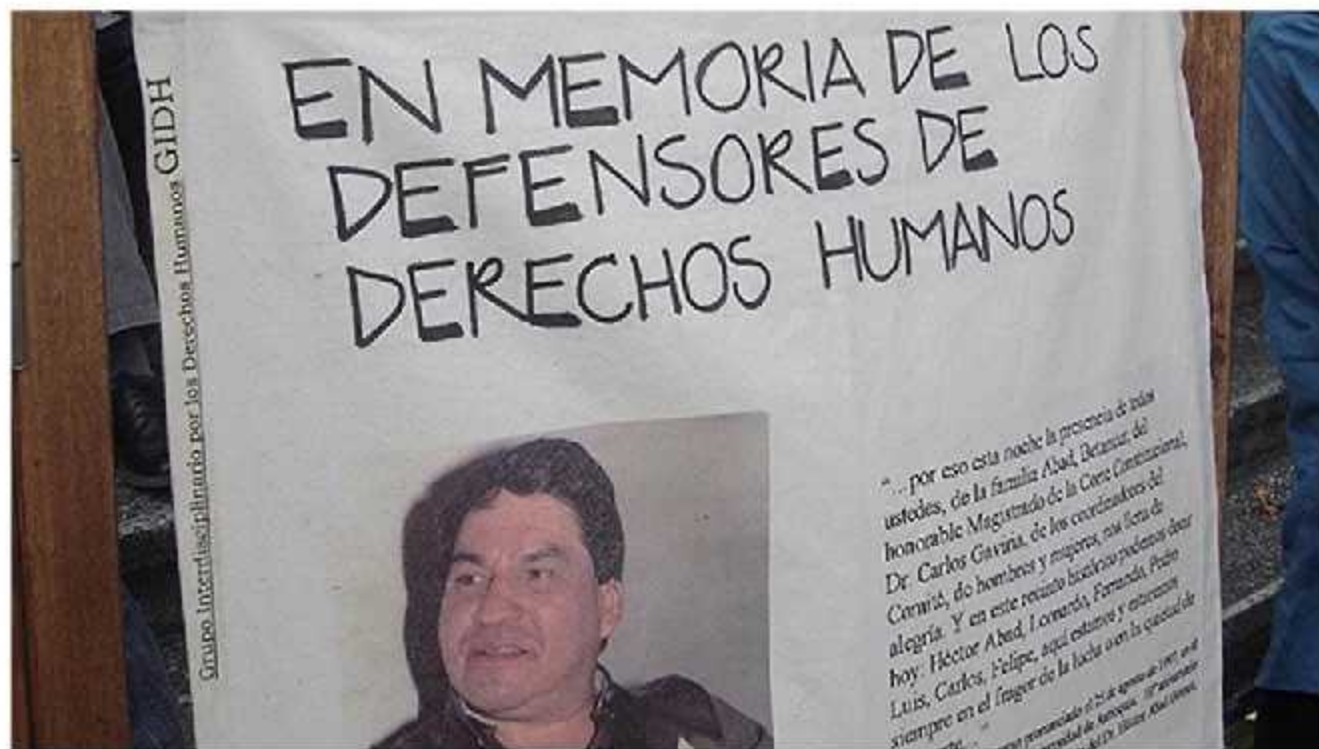 EN MEMORIA DE LOS
DEFENSORES DE
DERECHOS HUMANOS
Grupo Interdisciplinario por los Derechos Humanos GIDH
"...por eso esta noche la presencia de todos
ustedes, de la familia Abad, Betancur, del
honorable Magistrado de la Corte Constitucional,
Dr. Carlos Gaviria, de los coordinadores del
Comité, do hombres y mujeres, nos llena de
alegría. Y en este recinto histórico podemos decir
hoy: Héctor Abad, Leonardo, Fernando, Pedro
Luis, Carlos, Felipe, aquí estamos y estaremos
siempre en el fragor de la lucha o en la quietud de
pronunciado el 25 de agosto de 1997, en el
de Antioquia. 10°
del Dr. Héctor Abad Gómez,